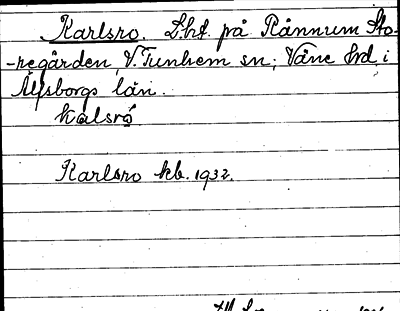 Karlsro. Lht. på Rånnum Sto-
-regården, V. Tunhem sn; Väne hd i
Älfsborgs län.
kalsrọ
Karlsro kb. 1932.